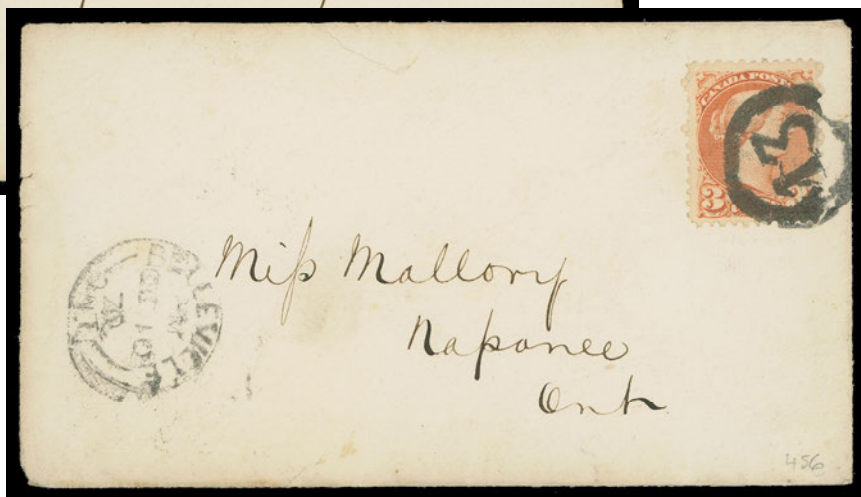 CANADA POST
3
13
BELLEVILLE
ONT
Miss Mallory
Napanee
Ont
456